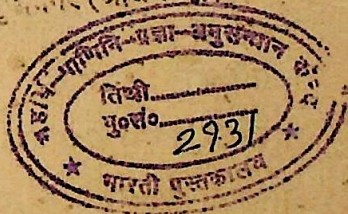 पाणिनि-प्रज्ञा-अनुसन्धान केन्द्र
तिथी............
पु०सं०............
2931
भारती पुस्तकालय